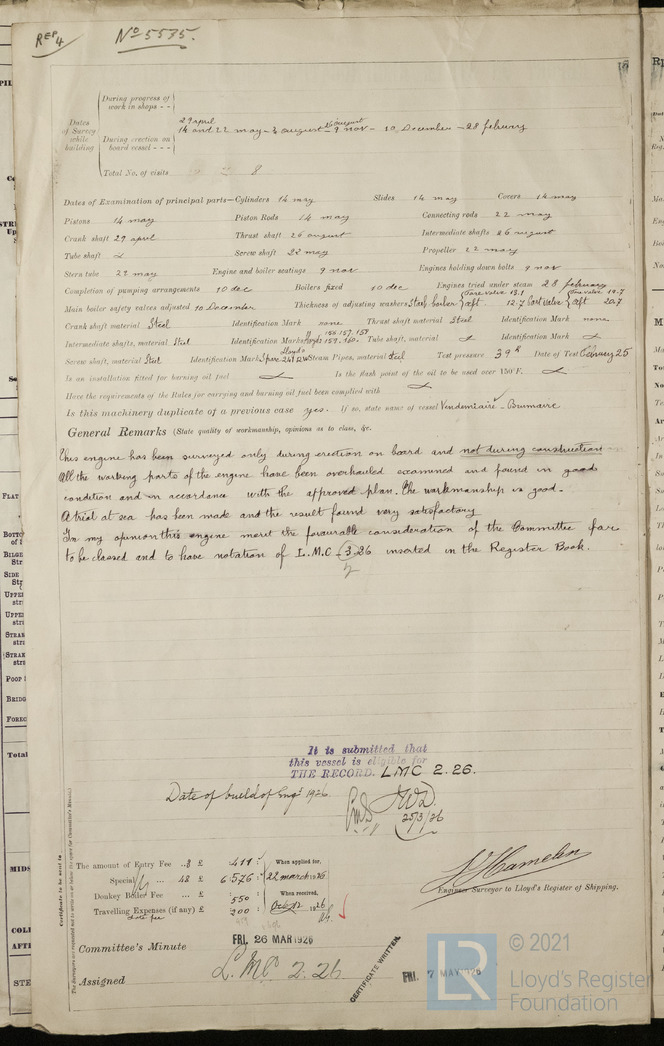 REP 4 No 5575.
During progress of work in shops - -
29 april
26 august
Dates of Survey while building
During erection on board vessel - - -
14 and 22 may - 3 august - 9 nov - 10 December - 28 february
Total No. of visits 8
Dates of Examination of principal parts—Cylinders 14 may Slides 14 may Covers 14 may
Pistons 14 may Piston Rods 14 may Connecting rods 22 may
Crank shaft 29 april Thrust shaft 26 august Intermediate shafts 26 august
Tube shaft Screw shaft 22 may Propeller 22 may
Stern tube 22 may Engine and boiler seatings 9 nov Engines holding down bolts 9 nov
Completion of pumping arrangements 10 dec Boilers fixed 10 dec Engines tried under steam 28 february
Main boiler safety valves adjusted 10 December Thickness of adjusting washers Starb boiler aft 12.7 Port valve aft 20.7
Crank shaft material Steel Identification Mark none Thrust shaft material Steel Identification Mark none
Intermediate shafts, material Steel Identification Marks Lloyds 156.157.158 159.160. Tube shaft, material Identification Mark
Screw shaft, material Steel Identification Mark Lloyd's Spare Steam Pipes, material Steel Test pressure 39 k Date of Test February 25
Is an installation fitted for burning oil fuel Is the flash point of the oil to be used over 150°F.
Have the requirements of the Rules for carrying and burning oil fuel been complied with
Is this machinery duplicate of a previous case yes. If so, state name of vessel Vendemiaire - Brumaire
General Remarks (State quality of workmanship, opinions as to class, &c.
This engine has been surveyed only during erection on board and not during construction
All the working parts of the engine have been overhauled examined and found in good
condition and in accordance with the approved plan. The workmanship is good.
A trial at sea has been made and the result found very satisfactory
In my opinion this engine merit the favourable consideration of the Committee for
to be classed and to have notation of L.M.C 3.26 inserted in the Register Book.
It is submitted that
this vessel is eligible for
THE RECORD. LMC 2.26.
Date of build of Engs 1926.
25/3/26
The amount of Entry Fee £ 411: When applied for,
Special £ 6576: 22 march 1926
Donkey Boiler Fee £ 550 When received,
Travelling Expenses (if any) £ 200: 1926
late fee
Engineer Surveyor to Lloyd's Register of Shipping.
Committee's Minute FRI. 26 MAR 1926
Assigned L.M.C. 2.26
CERTIFICATE WRITTEN
FRI. 7 MAY 1926
Certificate to be sent to
LR © 2021
Lloyd's Register
Foundation